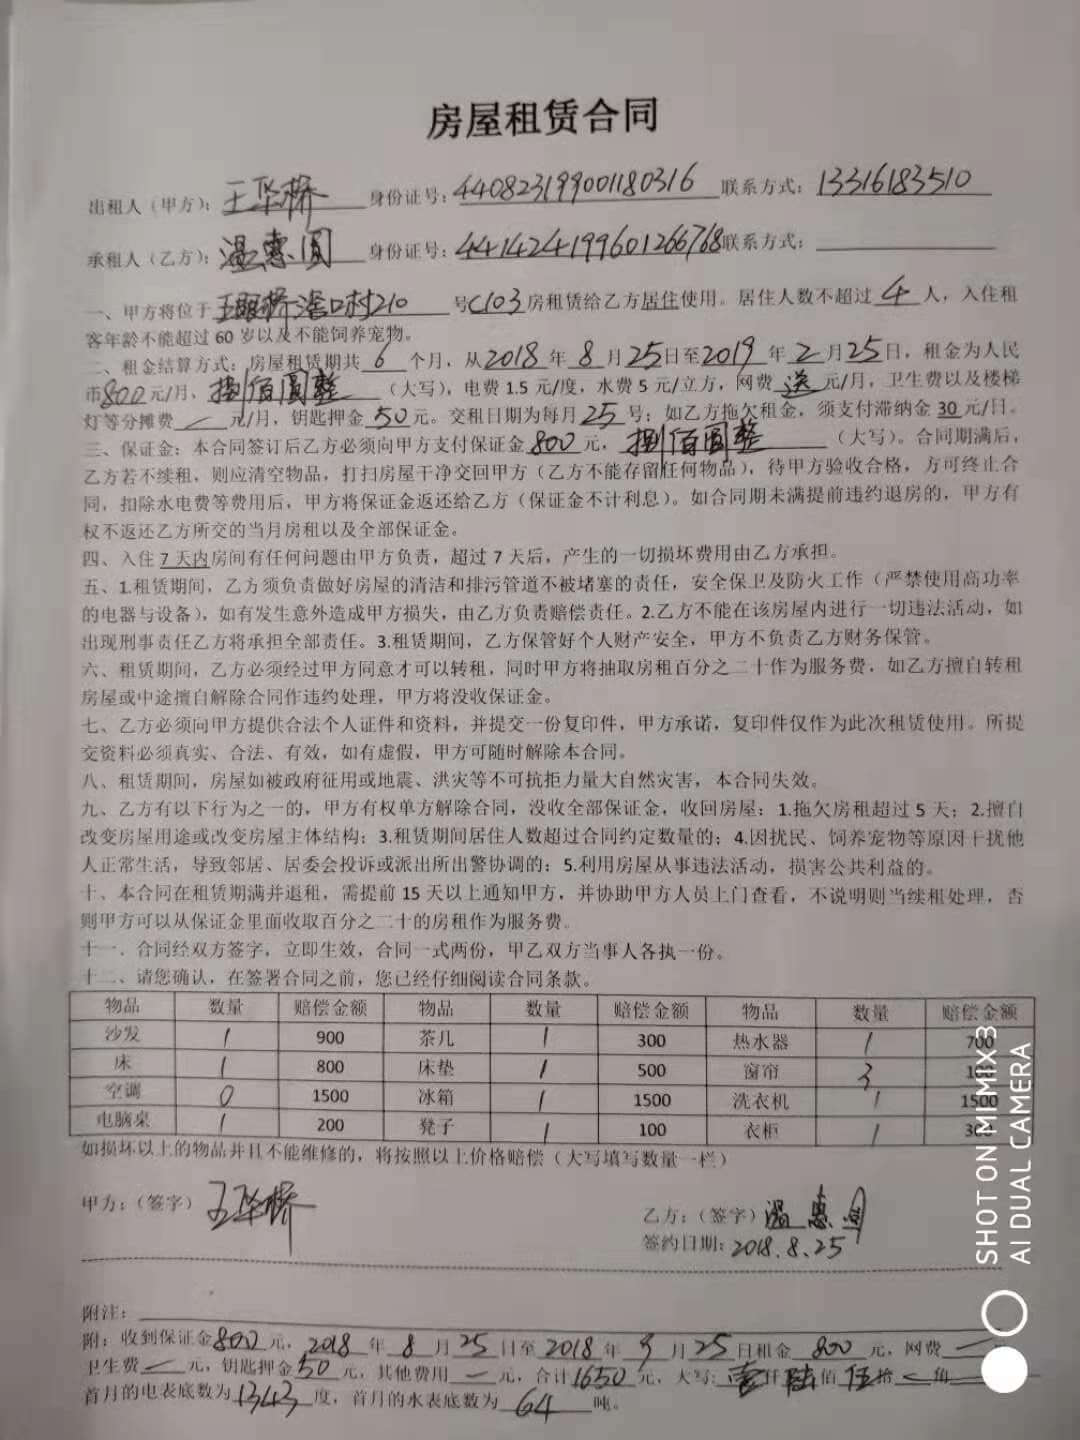 房屋租赁合同
出租人（甲方）：王华桥 身份证号：440823199001180316 联系方式：13316183510
承租人（乙方）：温惠圆 身份证号：441424199601266768 联系方式：
一、甲方将位于 210 号C103房租赁给乙方居住使用。居住人数不超过 4 人，入住租
客年龄不能超过 60 岁以及不能饲养宠物。
二、租金结算方式：房屋租赁期共 6 个月，从2018 年 8 月25日至2019 年 2 月25日，租金为人民
币800元/月、捌佰圆整（大写），电费 1.5 元/度，水费 5 元/立方，网费 送 元/月，卫生费以及楼梯
灯等分摊费 — 元/月，钥匙押金 50 元。交租日期为每月 25 号；如乙方拖欠租金，须支付滞纳金 30 元/日。
三、保证金：本合同签订后乙方必须向甲方支付保证金 800 元，捌佰圆整（大写）。合同期满后，
乙方若不续租，则应清空物品，打扫房屋干净交回甲方（乙方不能存留任何物品），待甲方验收合格，方可终止合
同，扣除水电费等费用后，甲方将保证金返还给乙方（保证金不计利息）。如合同期未满提前违约退房的，甲方有
权不返还乙方所交的当月房租以及全部保证金。
四、入住 7 天内房间有任何问题由甲方负责，超过 7 天后，产生的一切损坏费用由乙方承担。
五、1.租赁期间，乙方须负责做好房屋的清洁和排污管道不被堵塞的责任，安全保卫及防火工作（严禁使用高功率
的电器与设备），如有发生意外造成甲方损失，由乙方负责赔偿责任。2.乙方不能在该房屋内进行一切违法活动，如
出现刑事责任乙方将承担全部责任。3.租赁期间，乙方保管好个人财产安全，甲方不负责乙方财务保管。
六、租赁期间，乙方必须经过甲方同意才可以转租，同时甲方将抽取房租百分之二十作为服务费，如乙方擅自转租
房屋或中途擅自解除合同作违约处理，甲方将没收保证金。
七、乙方必须向甲方提供合法个人证件和资料，并提交一份复印件，甲方承诺，复印件仅作为此次租赁使用。所提
交资料必须真实、合法、有效，如有虚假，甲方可随时解除本合同。
八、租赁期间，房屋如被政府征用或地震、洪灾等不可抗拒力量大自然灾害，本合同失效。
九、乙方有以下行为之一的，甲方有权单方解除合同，没收全部保证金，收回房屋：1.拖欠房租超过 5 天；2.擅自
改变房屋用途或改变房屋主体结构；3.租赁期间居住人数超过合同约定数量的；4.因扰民、饲养宠物等原因干扰他
人正常生活，导致邻居、居委会投诉或派出所出警协调的；5.利用房屋从事违法活动，损害公共利益的。
十、本合同在租赁期满并退租，需提前 15 天以上通知甲方，并协助甲方人员上门查看，不说明则当续租处理，否
则甲方可以从保证金里面收取百分之二十的房租作为服务费。
十一．合同经双方签字，立即生效，合同一式两份，甲乙双方当事人各执一份。
十二、请您确认，在签署合同之前，您已经仔细阅读合同条款。
物品 数量 赔偿金额 物品 数量 赔偿金额 物品 数量 赔偿金额
沙发 1 900 茶几 1 300 热水器 1 700
床 1 800 床垫 1 500 窗帘 3 100
空调 0 1500 冰箱 1 1500 洗衣机 1 1500
电脑桌 1 200 凳子 1 100 衣柜 1 300
如损坏以上的物品并且不能维修的，将按照以上价格赔偿（大写填写数量一栏）
甲方：（签字）王华桥
乙方：（签字）温惠圆
签约日期：2018.8.25
附注：
附：收到保证金800元，2018 年 8 月 25 日至 2018 年 9 月 25 日租金 800 元，网费 —
卫生费 — 元，钥匙押金 50 元，其他费用 — 元，合计1650元，大写：壹仟陆佰伍拾 — 角
首月的电表底数为 1343 度，首月的水表底数为 64 吨。
SHOT ON MI MIX 3
AI DUAL CAMERA